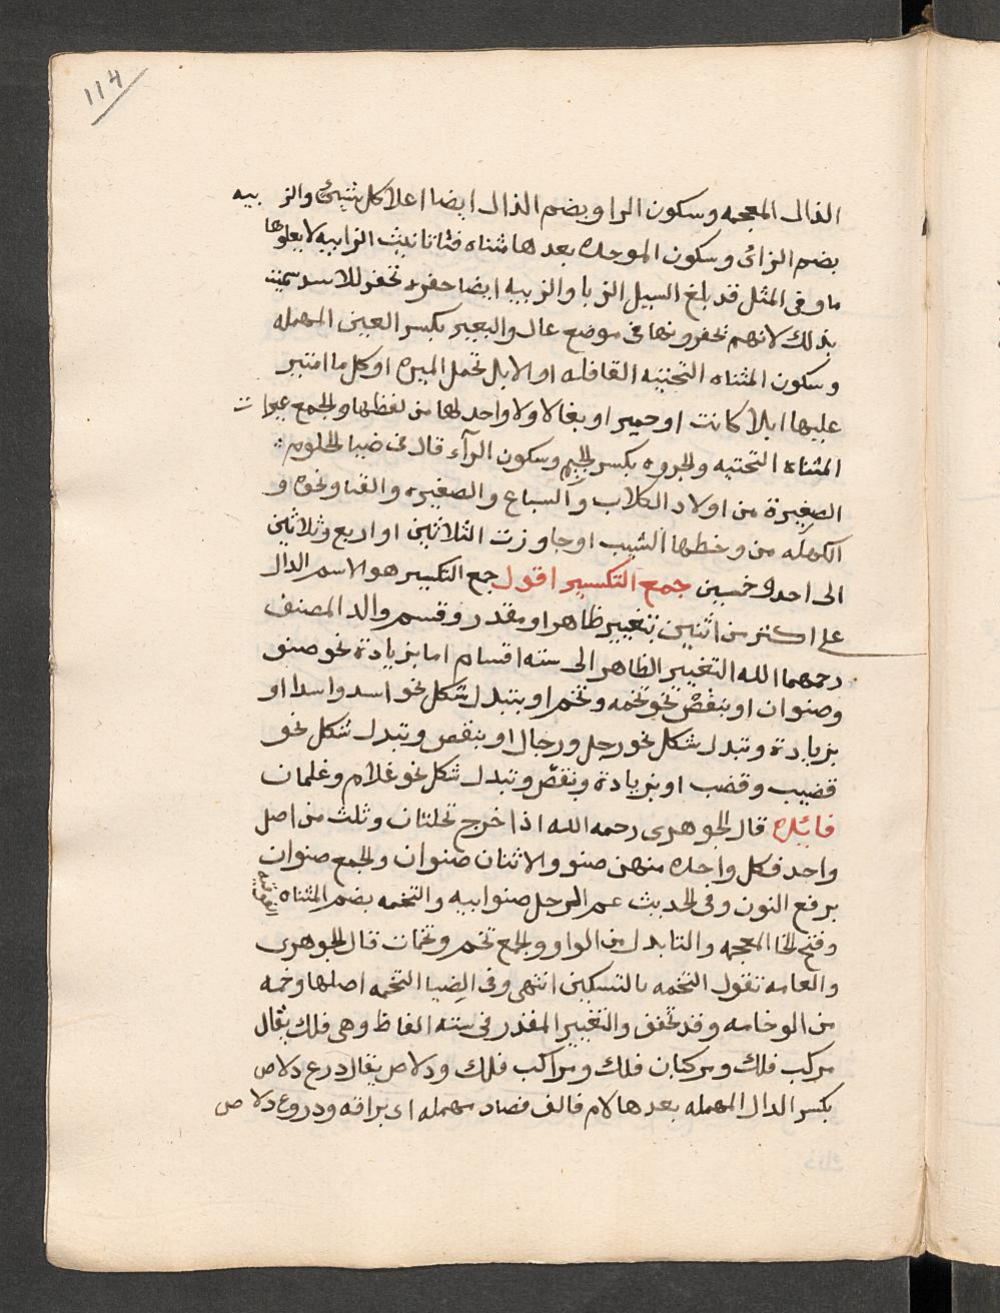 114
الذال المعجمه وسكون الرا وبضم الذال ايضا اعلا كل شيئ والز بيه
بضم الزائ وسكون الموحده بعدها مثناه فتا تانيث الزابيه لا يعلوها
ما وفى المثل قد بلغ السيل الزبا والزبيه ايضا حفره تحفر للاسد سميت
بذلك لانهم يحفرونها فى موضع عال والبعير بكسر العين المهمله
وسكون المثناه التحتيه القافله او الابل تحمل الميره او كل ما امتير
عليها ابلا كانت او حمير او بغالا ولا واحد لها من لفظها والجمع عيرات
المثناه التحتيه والجروه بكسر الجيم وسكون الرآء قال فى ضيا الحلوم :
الصغيرة من اولاد الكلاب والسباع والصغيره والقثا ونحوه و
الكهله من وخطها الشيب او جاوزت الثلاثين او اربع وثلاثين
الى احد وخمسين جمع التكسير اقول جمع التكسير هو الاسم الدال
على اكثر من اثنين بتغيير ظاهر او مقدر وقسم والد المصنف
رحمهما الله التغيير الظاهر الى سته اقسام اما بزيادة نحو صنو
وصنوان او بنقص نحو تخمه وتخم او بتبدل شكل نحو اسد واسدا او
بزيادة وتبدل شكل نحو رجل ورجال او بنقص وتبدل شكل نحو
قضيب وقضب او بزيادة ونقص وتبدل شكل نحو غلام وغلمان
فائده قال الجوهرى رحمه الله اذا خرج نخلتان وثلث من اصل
واحد فكل واحده منهن صنو والاثنان صنوان والجمع صنوان
برفع النون وفى الحديث عم الرجل صنو ابيه والتخمه بضم المثناه الفوقيه
وفتح الخا المعجمه والتا بدل من الواو والجمع تخم وتخمات قال الجوهرى
والعامه تقول التخمه بالتسكين انتهى وفى الضيا التخمه اصلها وخمه
من الوخامه وقد تخفف والتغيير المقدر فى سته الفاظ وهى فلك يقال
مركب فلك ومركبان فلك ومراكب فلك ودلاص يقال درع دلاص
بكسر الدال المهمله بعدها لام فالف فصاد مهمله اى براقه ودروع دلاص